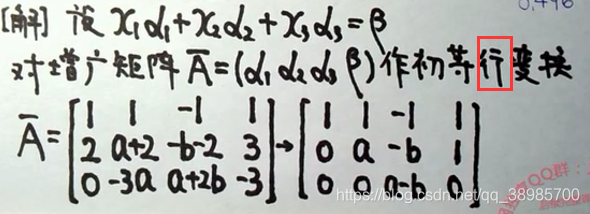 [解] 设 x₁α₁+x₂α₂+x₃α₃=β
对增广矩阵 Ā=(α₁ α₂ α₃ β)作初等行变换
Ā=[1 1 -1 1; 2 a+2 -b-2 3; 0 -3a a+2b -3]→[1 1 -1 1; 0 a -b 1; 0 0 a-b 0]
QQ群:
https://blog.csdn.net/qq_38985700